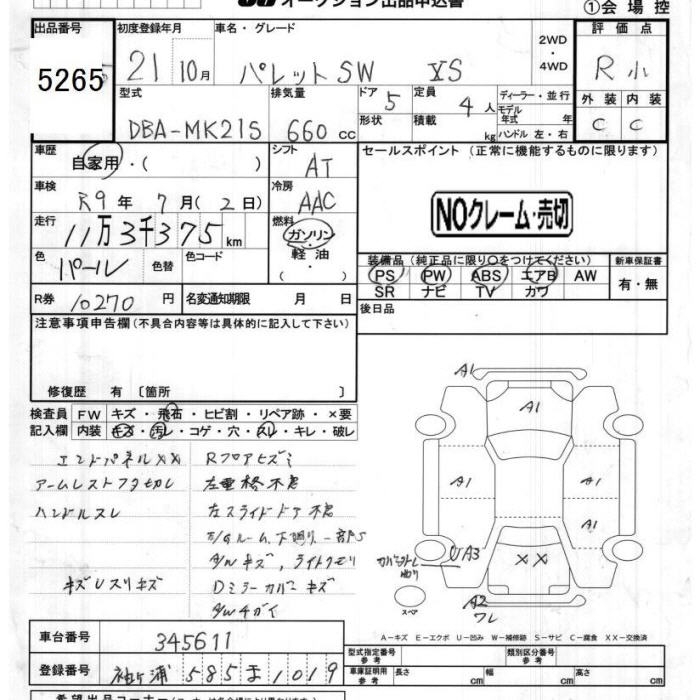 オークション出品申込書
①会場控
出品番号
5265
初度登録年月
21 10月
車名・グレード
パレットSW XS
2WD
・
4WD
評価点
R小
型式
DBA-MK21S
排気量
660 cc
ドア 5
形状
定員 4人
積載 kg
ディーラー・並行
モデル年式 年式
ハンドル 左・右
外装 内装
C C
車歴
自家用・( )
シフト
AT
セールスポイント (正常に機能するものに限ります)
車検
R9年 7月(2日)
冷房
AAC
NOクレーム・売切
走行
11万3千375 km
燃料
ガソリン
・
軽油
・
色
パール
色替
色コード
装備品 (純正品に限り○をつけてください)
新車保証書
PS PW ABS エアB AW
有・無
SR ナビ TV カワ
R券 10270円
名変通知期限 月 日
後日品
注意事項申告欄 (不具合内容等は具体的に記入して下さい)
修復歴 有 〔箇所 〕
検査員 FW キズ・飛石・ヒビ割・リペア跡・×要
記入欄 内装 キズ・汚レ・コゲ・穴・スレ・キレ・破レ
エンドパネルXX
Rフロアヒズミ
アームレストフタ切レ
ハンドルスレ
左スライドドア不良
キズレスリキズ
A/Wキズ、ライトクモリ
Dミラーカバーキズ
A/Wチガイ
A1
A1
A1
A1
A1
UA3
XX
スペア
A2
ワレ
A-キズ E-エクボ U-凹み W-補修跡 S-サビ C-腐食 XX-交換済
車台番号
345611
登録番号
袖ヶ浦 585 ま 1019
型式指定番号
参考
類別区分番号
参考
車庫証明用
参考
長さ cm
幅 cm
高さ cm
希望出品コーナー